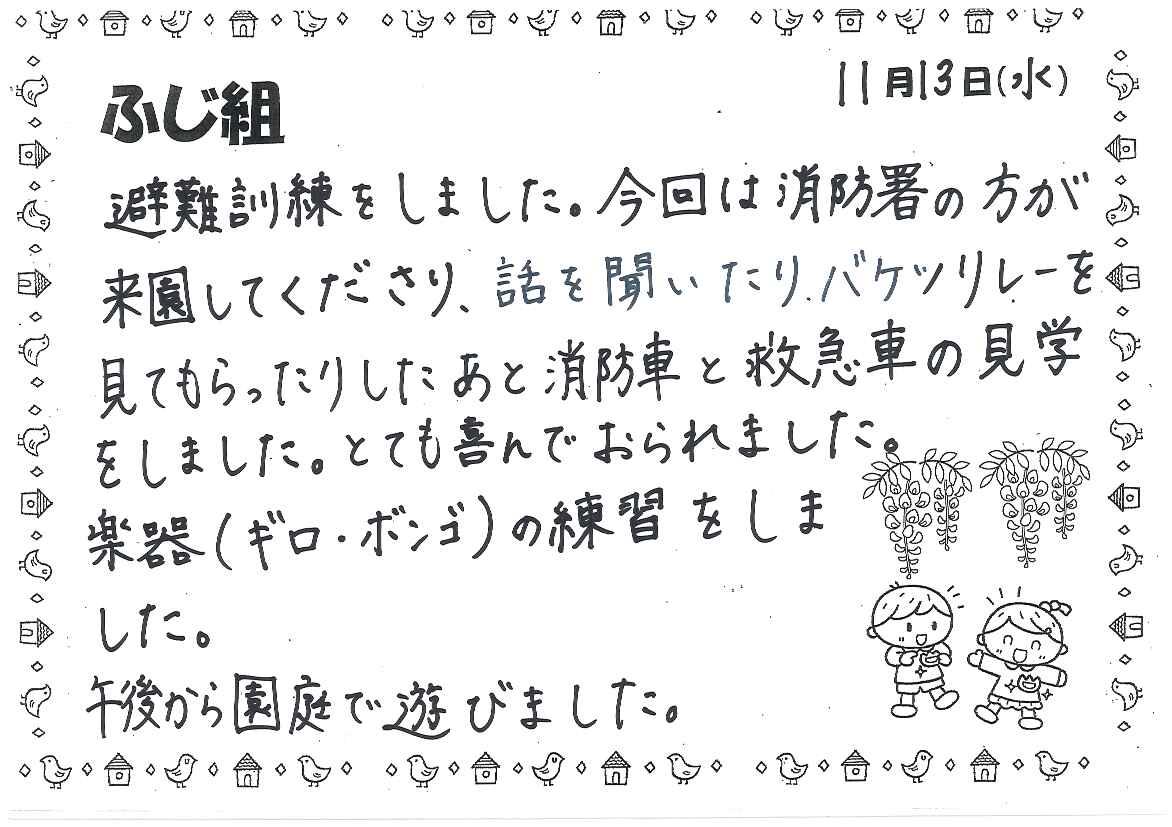 11月13日(水)
ふじ組
避難訓練をしました。今回は消防署の方が
来園してくださり、話を聞いたり、バケツリレーを
見てもらったりしたあと消防車と救急車の見学
をしました。とても喜んでおられました。
楽器(ギロ・ボンゴ)の練習をしま
した。
午後から園庭で遊びました。